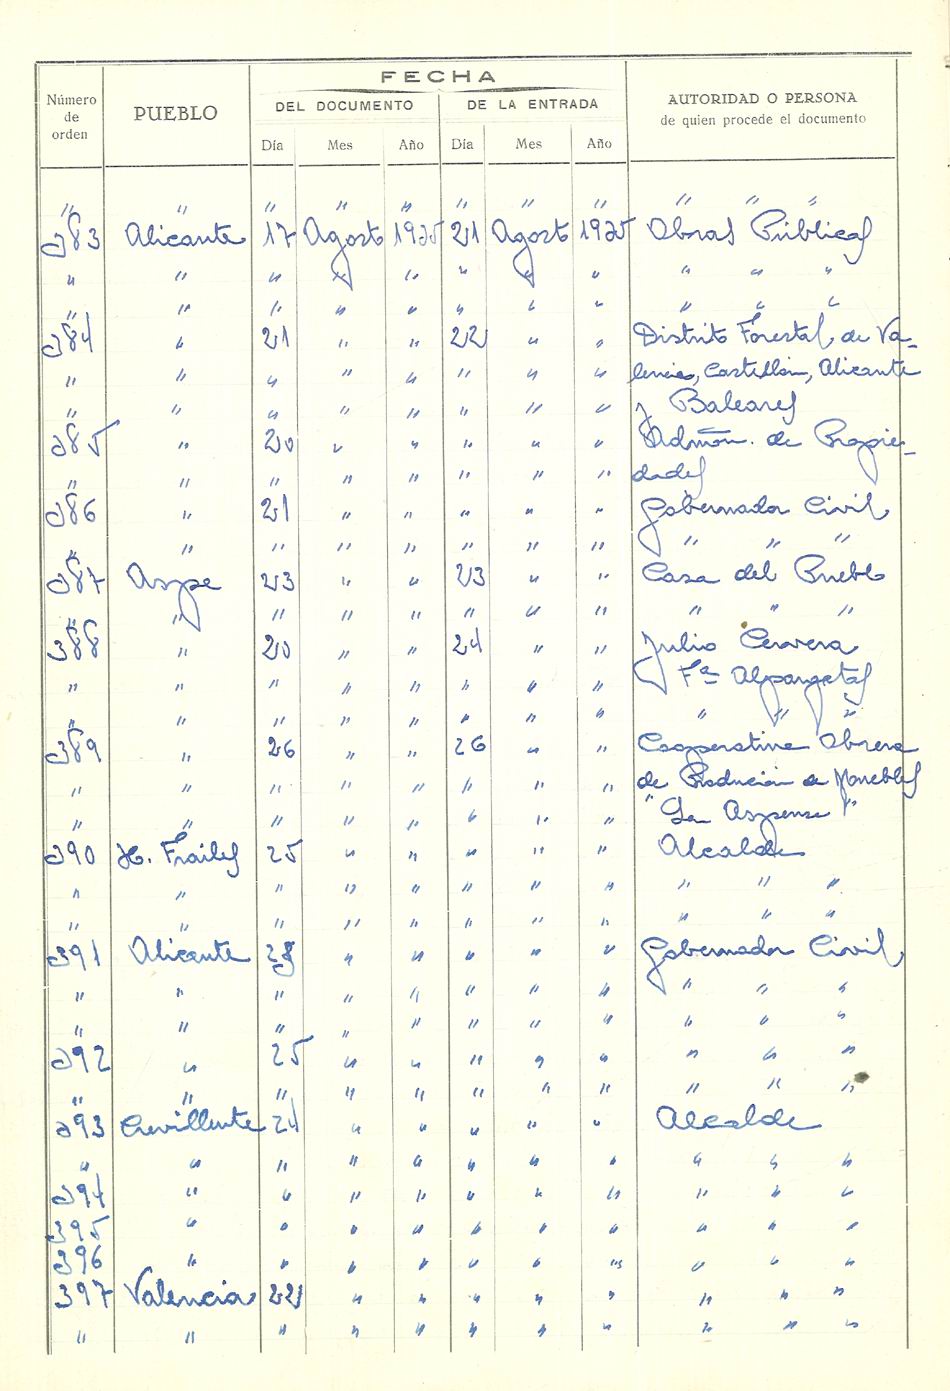 FECHA
Número de orden PUEBLO DEL DOCUMENTO DE LA ENTRADA AUTORIDAD O PERSONA de quien procede el documento
Día Mes Año Día Mes Año
" " " " " " " " " " "
383 Alicante 17 Agosto 1935 21 Agosto 1935 Obras Públicas
" " " " " " " " " " "
" " " " " " " " " " "
384 " 21 " " 22 " " Distrito Forestal de Va-
" " " " " " " " lencia, Castellón, Alicante
" " " " " " " " y Baleares
385 " 20 " " " " " Admón. de Propie-
" " " " " " " " dades
386 " 21 " " " " " Gobernador Civil
" " " " " " " " " " "
387 Aspe 23 " " 23 " " Casa del Pueblo
" " " " " " " " " " "
388 " 20 " " 24 " " Julio Cervera
" " " " " " " " Fª Alpargatas
" " " " " " " " " " "
389 " 26 " " 26 " " Cooperativa Obrera
" " " " " " " " de Producción de Muebles
" " " " " " " " "La Aspense"
390 H. Frailes 25 " " " " " Alcalde
" " " " " " " " " " "
" " " " " " " " " " "
391 Alicante 23 " " " " " Gobernador Civil
" " " " " " " " " " "
" " " " " " " " " " "
392 " 25 " " " " " " " "
" " " " " " " " " " "
393 Crevillente 24 " " " " " Alcalde
" " " " " " " " " " "
394 " " " " " " " " " "
395 " " " " " " " " " "
396 " " " " " " " " " "
397 Valencia 22 " " " " " " " "
" " " " " " " " " " "